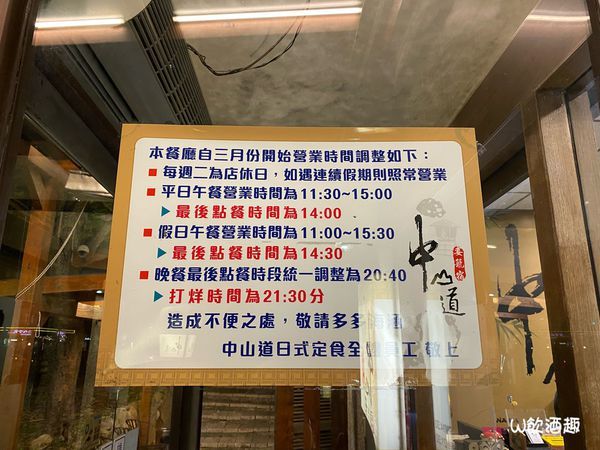 本餐廳自三月份開始營業時間調整如下：
■ 每週二為店休日，如遇連續假期則照常營業
■ 平日午餐營業時間為11:30~15:00
▶ 最後點餐時間為14:00
■ 假日午餐營業時間為11:00~15:30
▶ 最後點餐時間為14:30
■ 晚餐最後點餐時段統一調整為20:40
▶ 打烊時間為21:30分
造成不便之處，敬請多多海涵
中山道日式定食全體員工 敬上
中山道
W飲酒趣